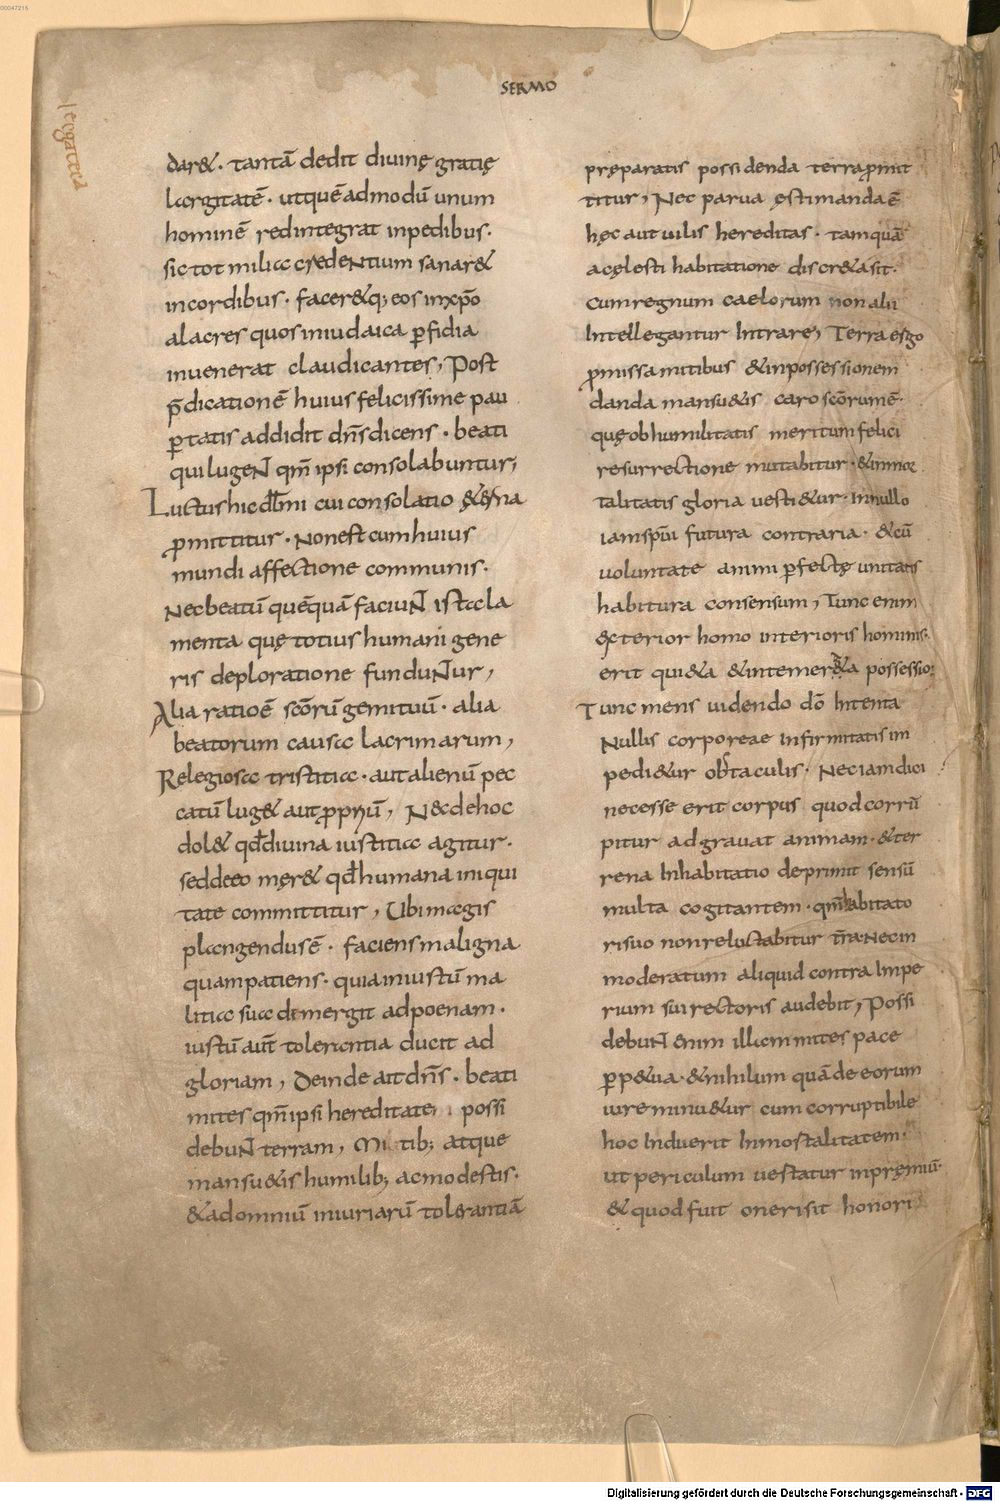 00047215
SERMO
dar&. tantā dedit diuinę gratię
largitatē. utquēadmodū unum
hominē redintegrat inpedibus.
sic tot milia credeNtium sanar&
incordibus. facer&q; eos inxp̄o
alacres quos iniudaica ꝑfidia
inuenerat claudicantes, Post
p̄dicationē huius felicissime pau
ꝑtatis addidit dn̄s dicens. beati
qui lugeNt qm̄ ipsi consolabuntur,
Luctus hic dl̄mi cui consolatio ę&erna
ꝓmittitur. Non est cum huius
mundi affectione communis.
Nec beatū quēquā faciuNt ista la
menta quę totius humani gene
ris deploratione funduNtur,
Alia ratio ē sc̄orū gemituū. alia
beatorum causa lacrimarum,
Relegiosa tristitia. aut alienū pec
catū lug& aut ꝓpriū, N& de hoc
dol& qd̄ diuina iustitia agitur.
sed deeo męr& qd̄ humana iniqui
tate committitur, Ubi magis
plangendus ē. faciens maligna
quam patiens. quia iniustū ma
litia sua demergit adpoenam.
iustū aut̄ tolerantia ducit ad
gloriam, Deinde ait dn̄s. beati
mites qm̄ ipsi hereditate possi
debuNt terram, Mi tib; atque
mansu&is humilib; ac modestis.
& ad omniū iniuriarū tolerantiā
pręparatis possidenda terra ꝓmit
titur, Nec parua ęstimanda ē
hęc aut uilis hereditas. tamquā
a cęlesti habitatione discr&a sit.
cum regnum caelorum non alii
Intellegantur Intrare, Terra ergo
ꝓmissa mitibus & inpossessionem
danda mansu&is caro sc̄orum ē.
quę ob humilitatis meritum felici
resurrectione mutabitur. & inmor
talitatis gloria uesti&ur. In nullo
iam sp̄ui futura contraria. & cū
uoluntate animi ꝑfectę unitatis
habitura consensum, Tunc enim
exterior homo interioris hominis.
erit qui&a & intemerata possessio.
Tunc mens uidendo dō Intenta
Nullis corporeae infirmitatis im
pedi&ur obstaculis. Nec iam dici
necesse erit corpus quod corrū
pitur adgrauat animam. & ter
rena Inhabitatio deprimit sensū
multa cogitantem. qm̄ habitato
ri suo non reluctabitur tr̄a. Nec in
moderatum aliquid contra Impe
rium sui rectoris audebit, Possi
debuNt enim illam mites pace
ꝑp&ua. & nihilum quā de eorum
iure minu&ur cum corruptibile
hoc Induerit Inmortalitatem.
ut periculum uertatur inpręmiū.
& quod fuit oneri sit honori
Digitalisierung gefördert durch die Deutsche Forschungsgemeinschaft - DFG